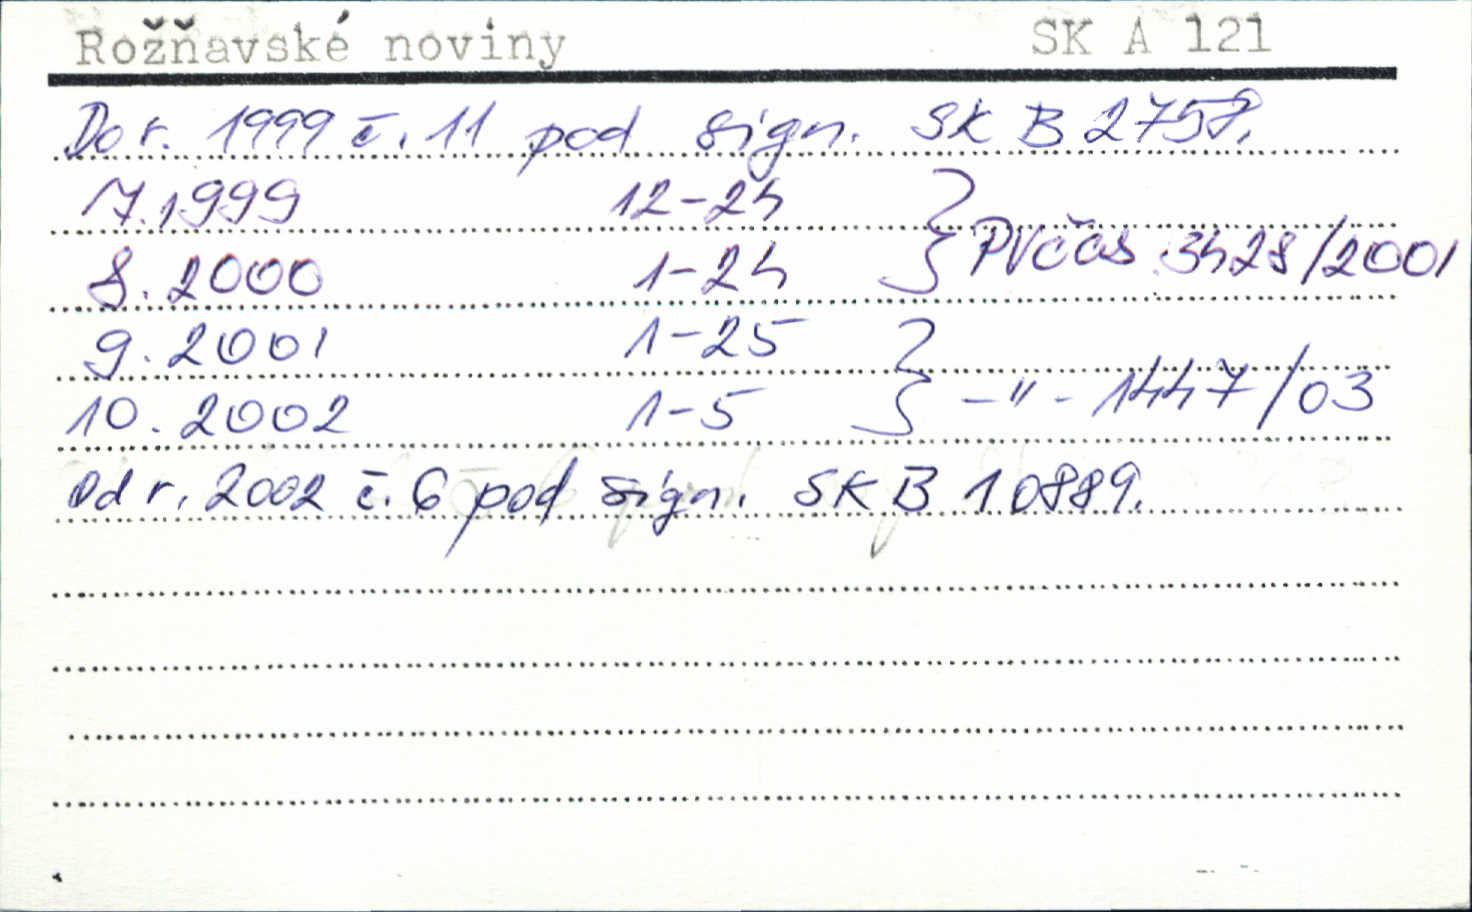 Rožňavské noviny SK A 121
Do r. 1999 č. 11 pod sign. SK B 2758.
7.1999 12-24 } PVčas 3428/2001
8.2000 1-24
9.2001 1-25 } -"- 1447/03
10.2002 1-5
Od r. 2002 č. 6 pod sign. SK B 10889.